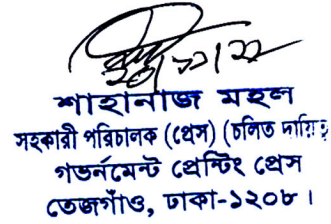 শাহানাজ মহল
সহকারী পরিচালক (প্রেস) (চলিত
গভর্নমেন্ট প্রেন্টিং প্রেস
তেজগাঁও, ঢাকা-১২০৮।